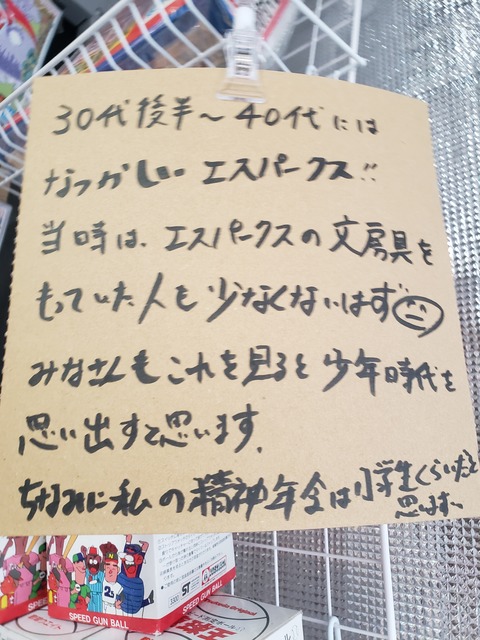 30代後半～40代には
なつかしい エスパークス!!
当時は、エスパークスの文房具を
もっていた人も少なくないはず
みなさんもこれを見ると少年時代を
思い出すと思います。
ちなみに私の精神年令は小学生くらいだと
思います。
ST
SPEED GUN BALL
SPEED GUN BALL